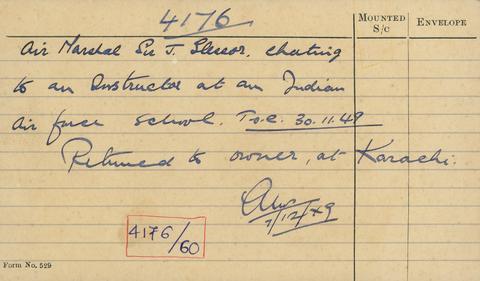 4176
MOUNTED
S/C
ENVELOPE
Air Marshal Sir J. Slessor, chatting
to an Instructor at an Indian
Air force school. T.o.c. 30.11.49
Returned to owner, at Karachi.
/12/49
4176/60
Form No. 529